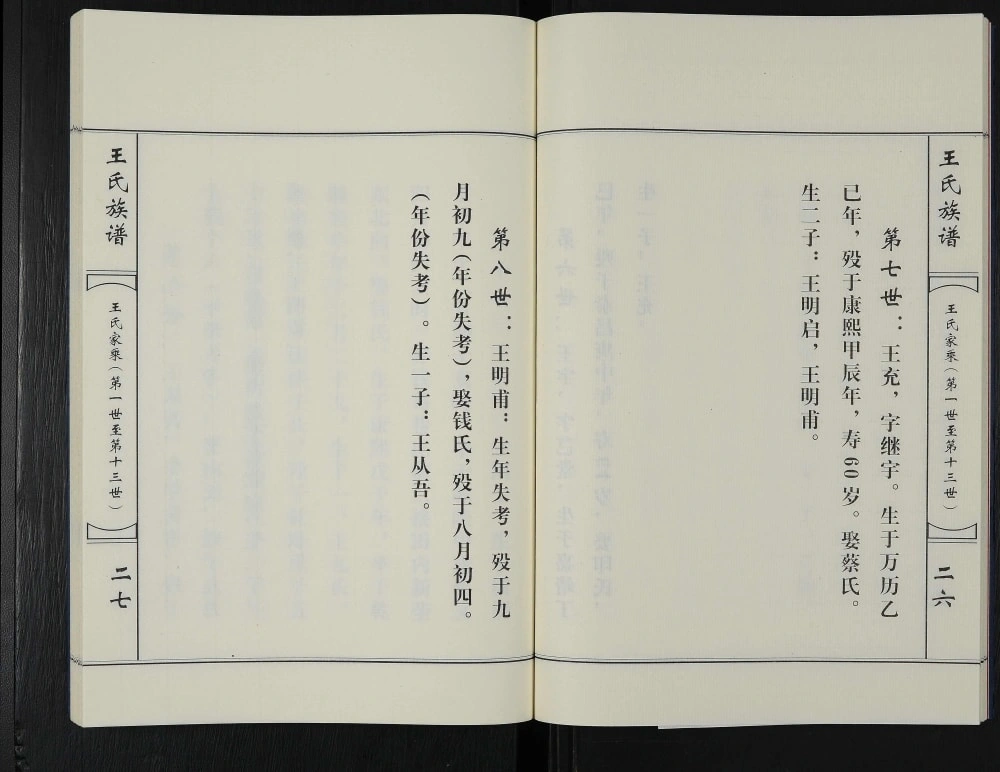 王氏族谱
王氏家乘（第一世至第十三世）
二六
第七世：王充，字继宇。生于万历乙
巳年，殁于康熙甲辰年，寿60岁。娶蔡氏。
生二子：王明启，王明甫。
第八世：王明甫：生年失考，殁于九
月初九（年份失考），娶钱氏，殁于八月初四。
（年份失考）。生一子：王从吾。
王氏族谱
王氏家乘（第一世至第十三世）
二七